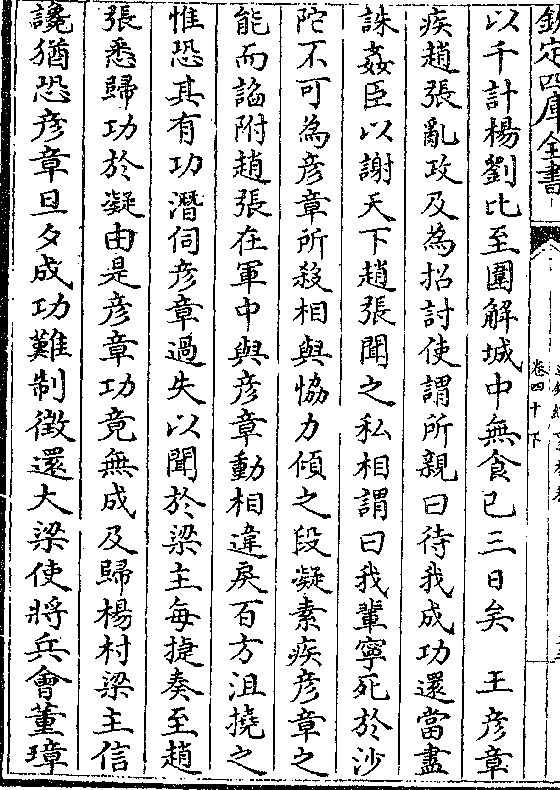 欽定四庫全書
卷四十下
以千計楊劉比至圍解城中無食已三日矣　王彦章
疾趙張亂政及為招討使謂所親曰待我成功還當盡
誅姦臣以謝天下趙張聞之私相謂曰我輩寧死於沙
陀不可為彦章所殺相與恊力傾之段凝素疾彦章之
能而諂附趙張在軍中與彦章動相違戾百方沮撓之
惟恐其有功潛伺彦章過失以聞於梁主每捷奏至趙
張悉歸功於凝由是彦章功竟無成及歸楊村梁主信
讒猶恐彦章旦夕成功難制徵還大梁使將兵會董璋